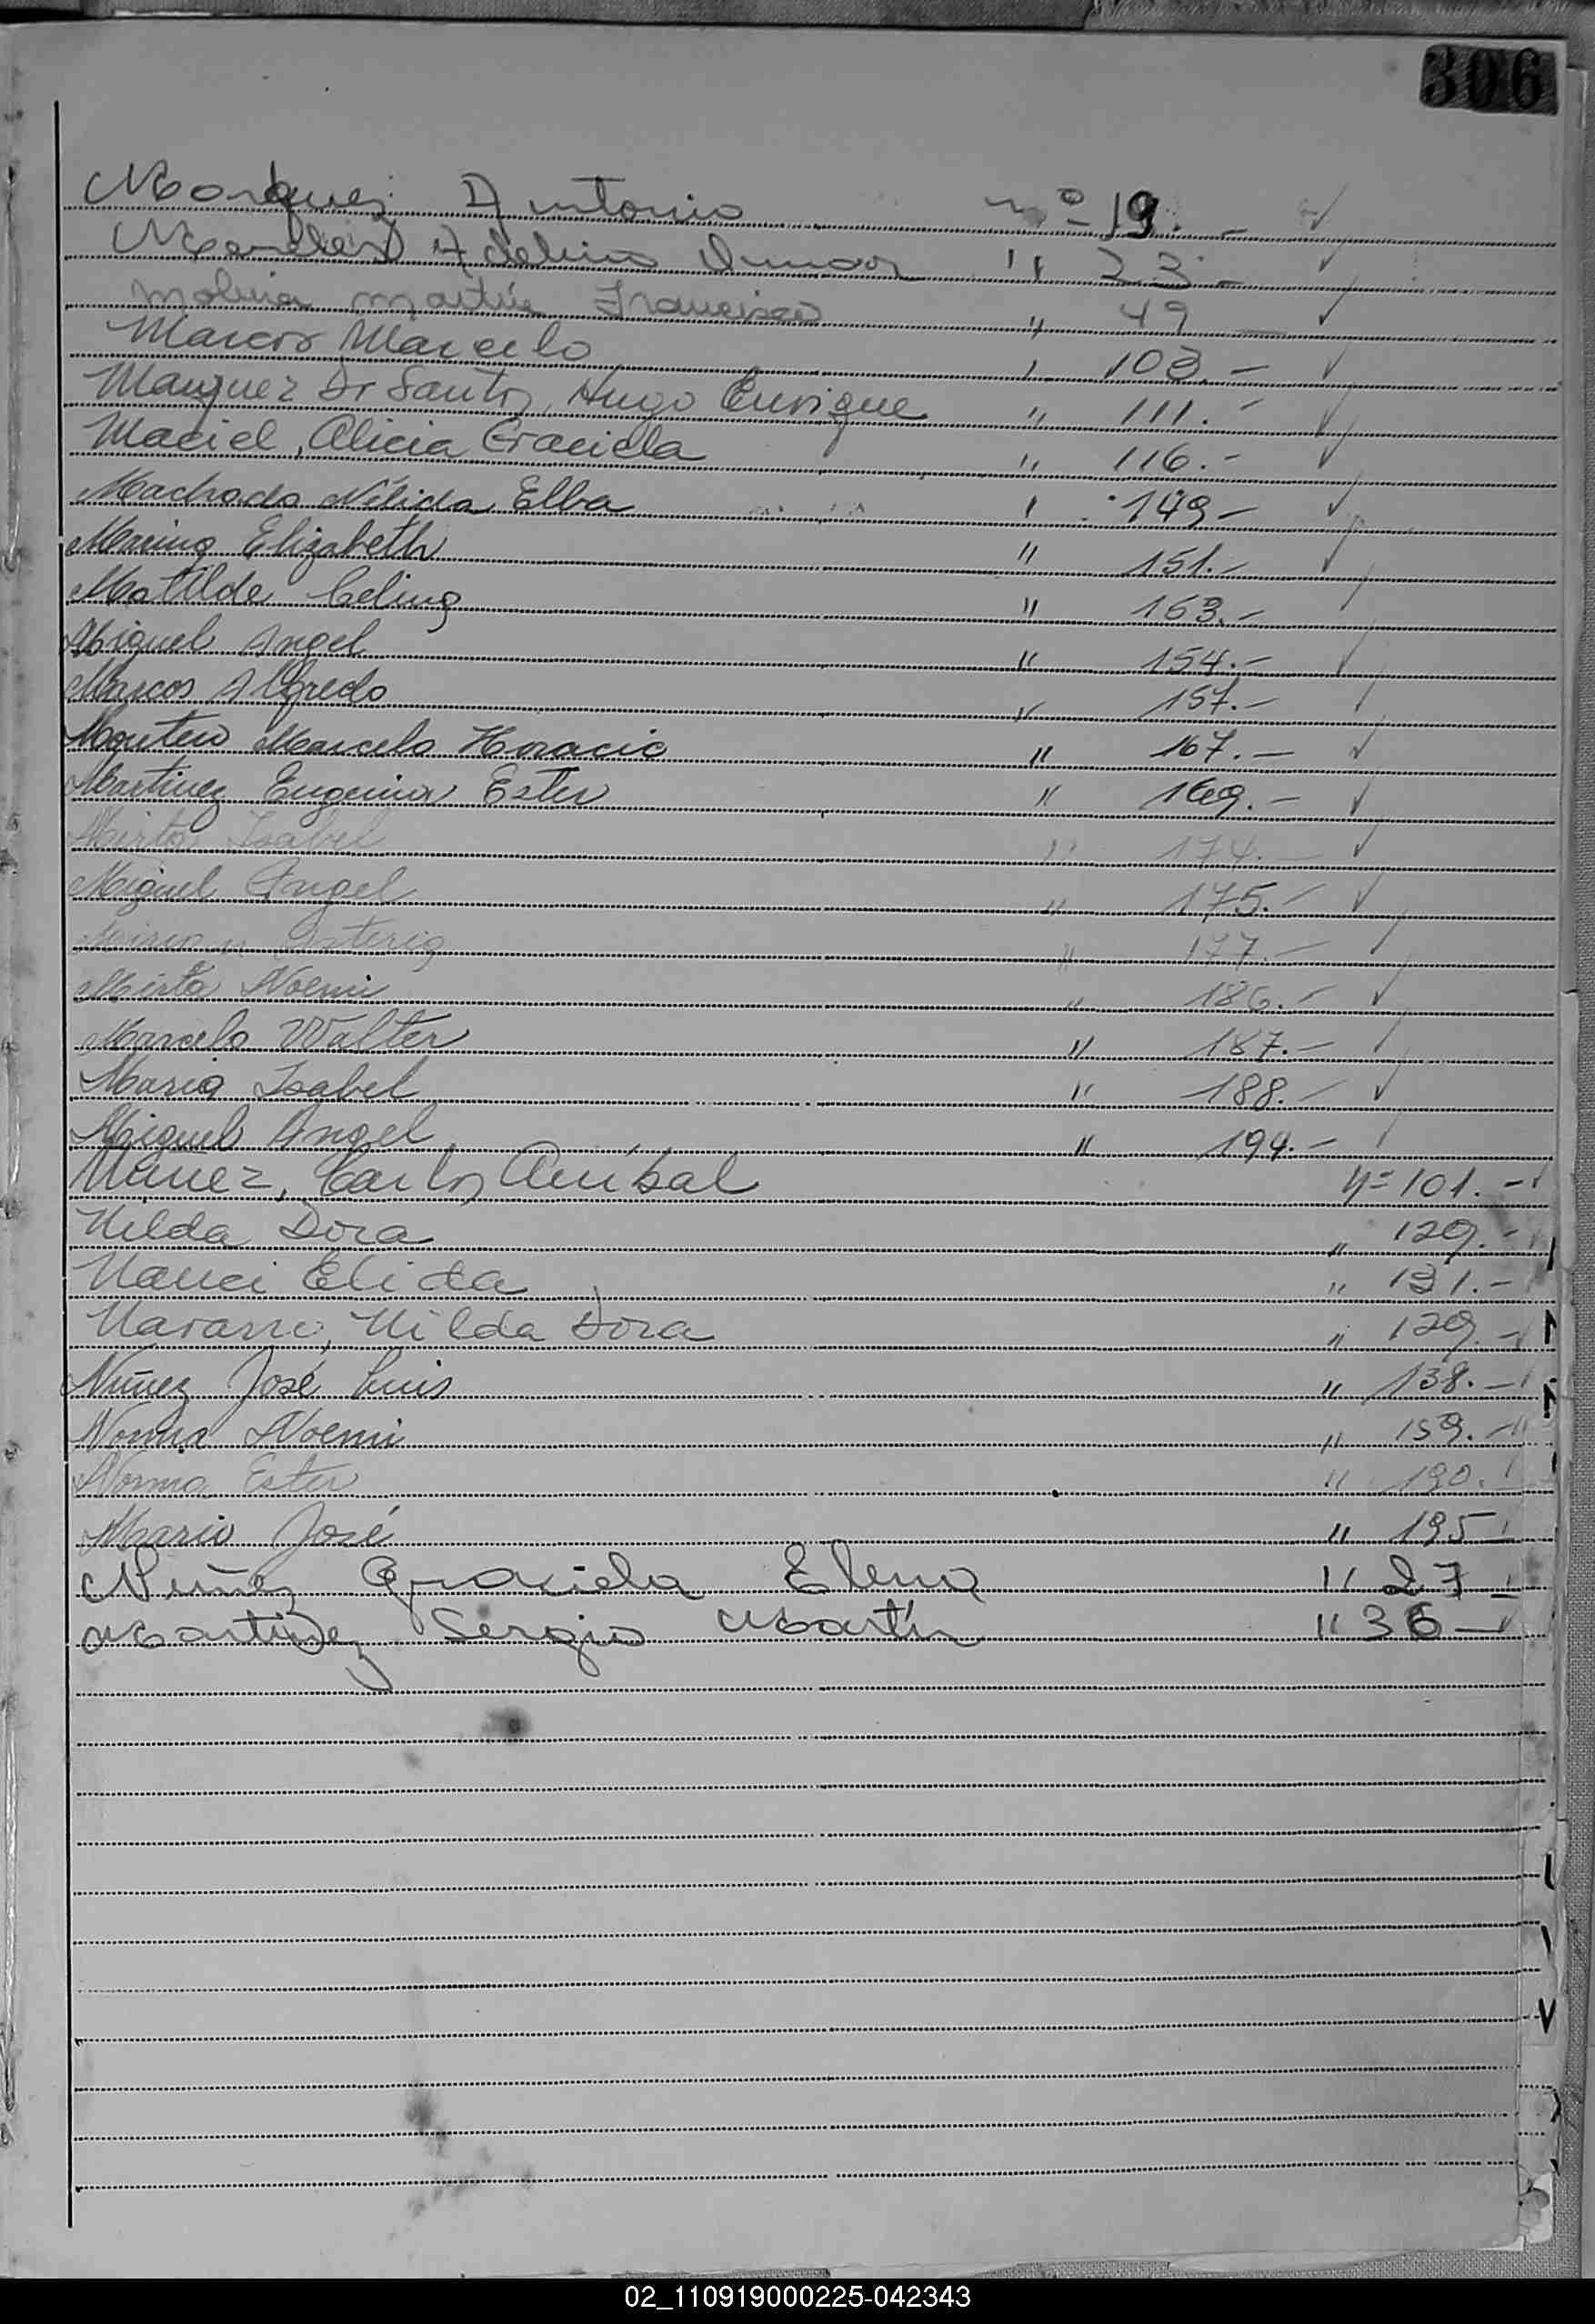 306
Marquez Antonio nº 19.-
Adelina " 23.-
Molina Martín Francisco " 49 -
Marcos Marcelo " 103.-
Marquez Dr Santos, Hugo Enrique " 111.-
Maciel, Alicia Graciela " 116.-
Machado Nélida Elba " 149-
Elizabeth " 151.-
Matilde Celina " 153.-
Miguel Angel " 154.-
Marcos Alfredo " 157.-
Marcelo Horacio " 167.-
Martinez Eugenia Ester " 169.-
Mirta Isabel " 174.-
Miguel Angel " 175.-
" 177.-
Mirta Noemi " 186.-
Marcelo Walter " 187.-
Maria Isabel " 188.-
Miguel Angel " 194.-
Nuñez, Carlos Aníbal Nº 101.-
Nilda Dora " 129.-
Nanci Elida " 131.-
Navarro, Nilda Dora " 129.-
Nuñez José Luis " 138.-
Norma Noemi " 159.-
Norma Ester " 190.-
Mario José " 195-
Nuñez Graciela Elena " 27-
Martinez Sergio Martín " 36-
02_110919000225-042343